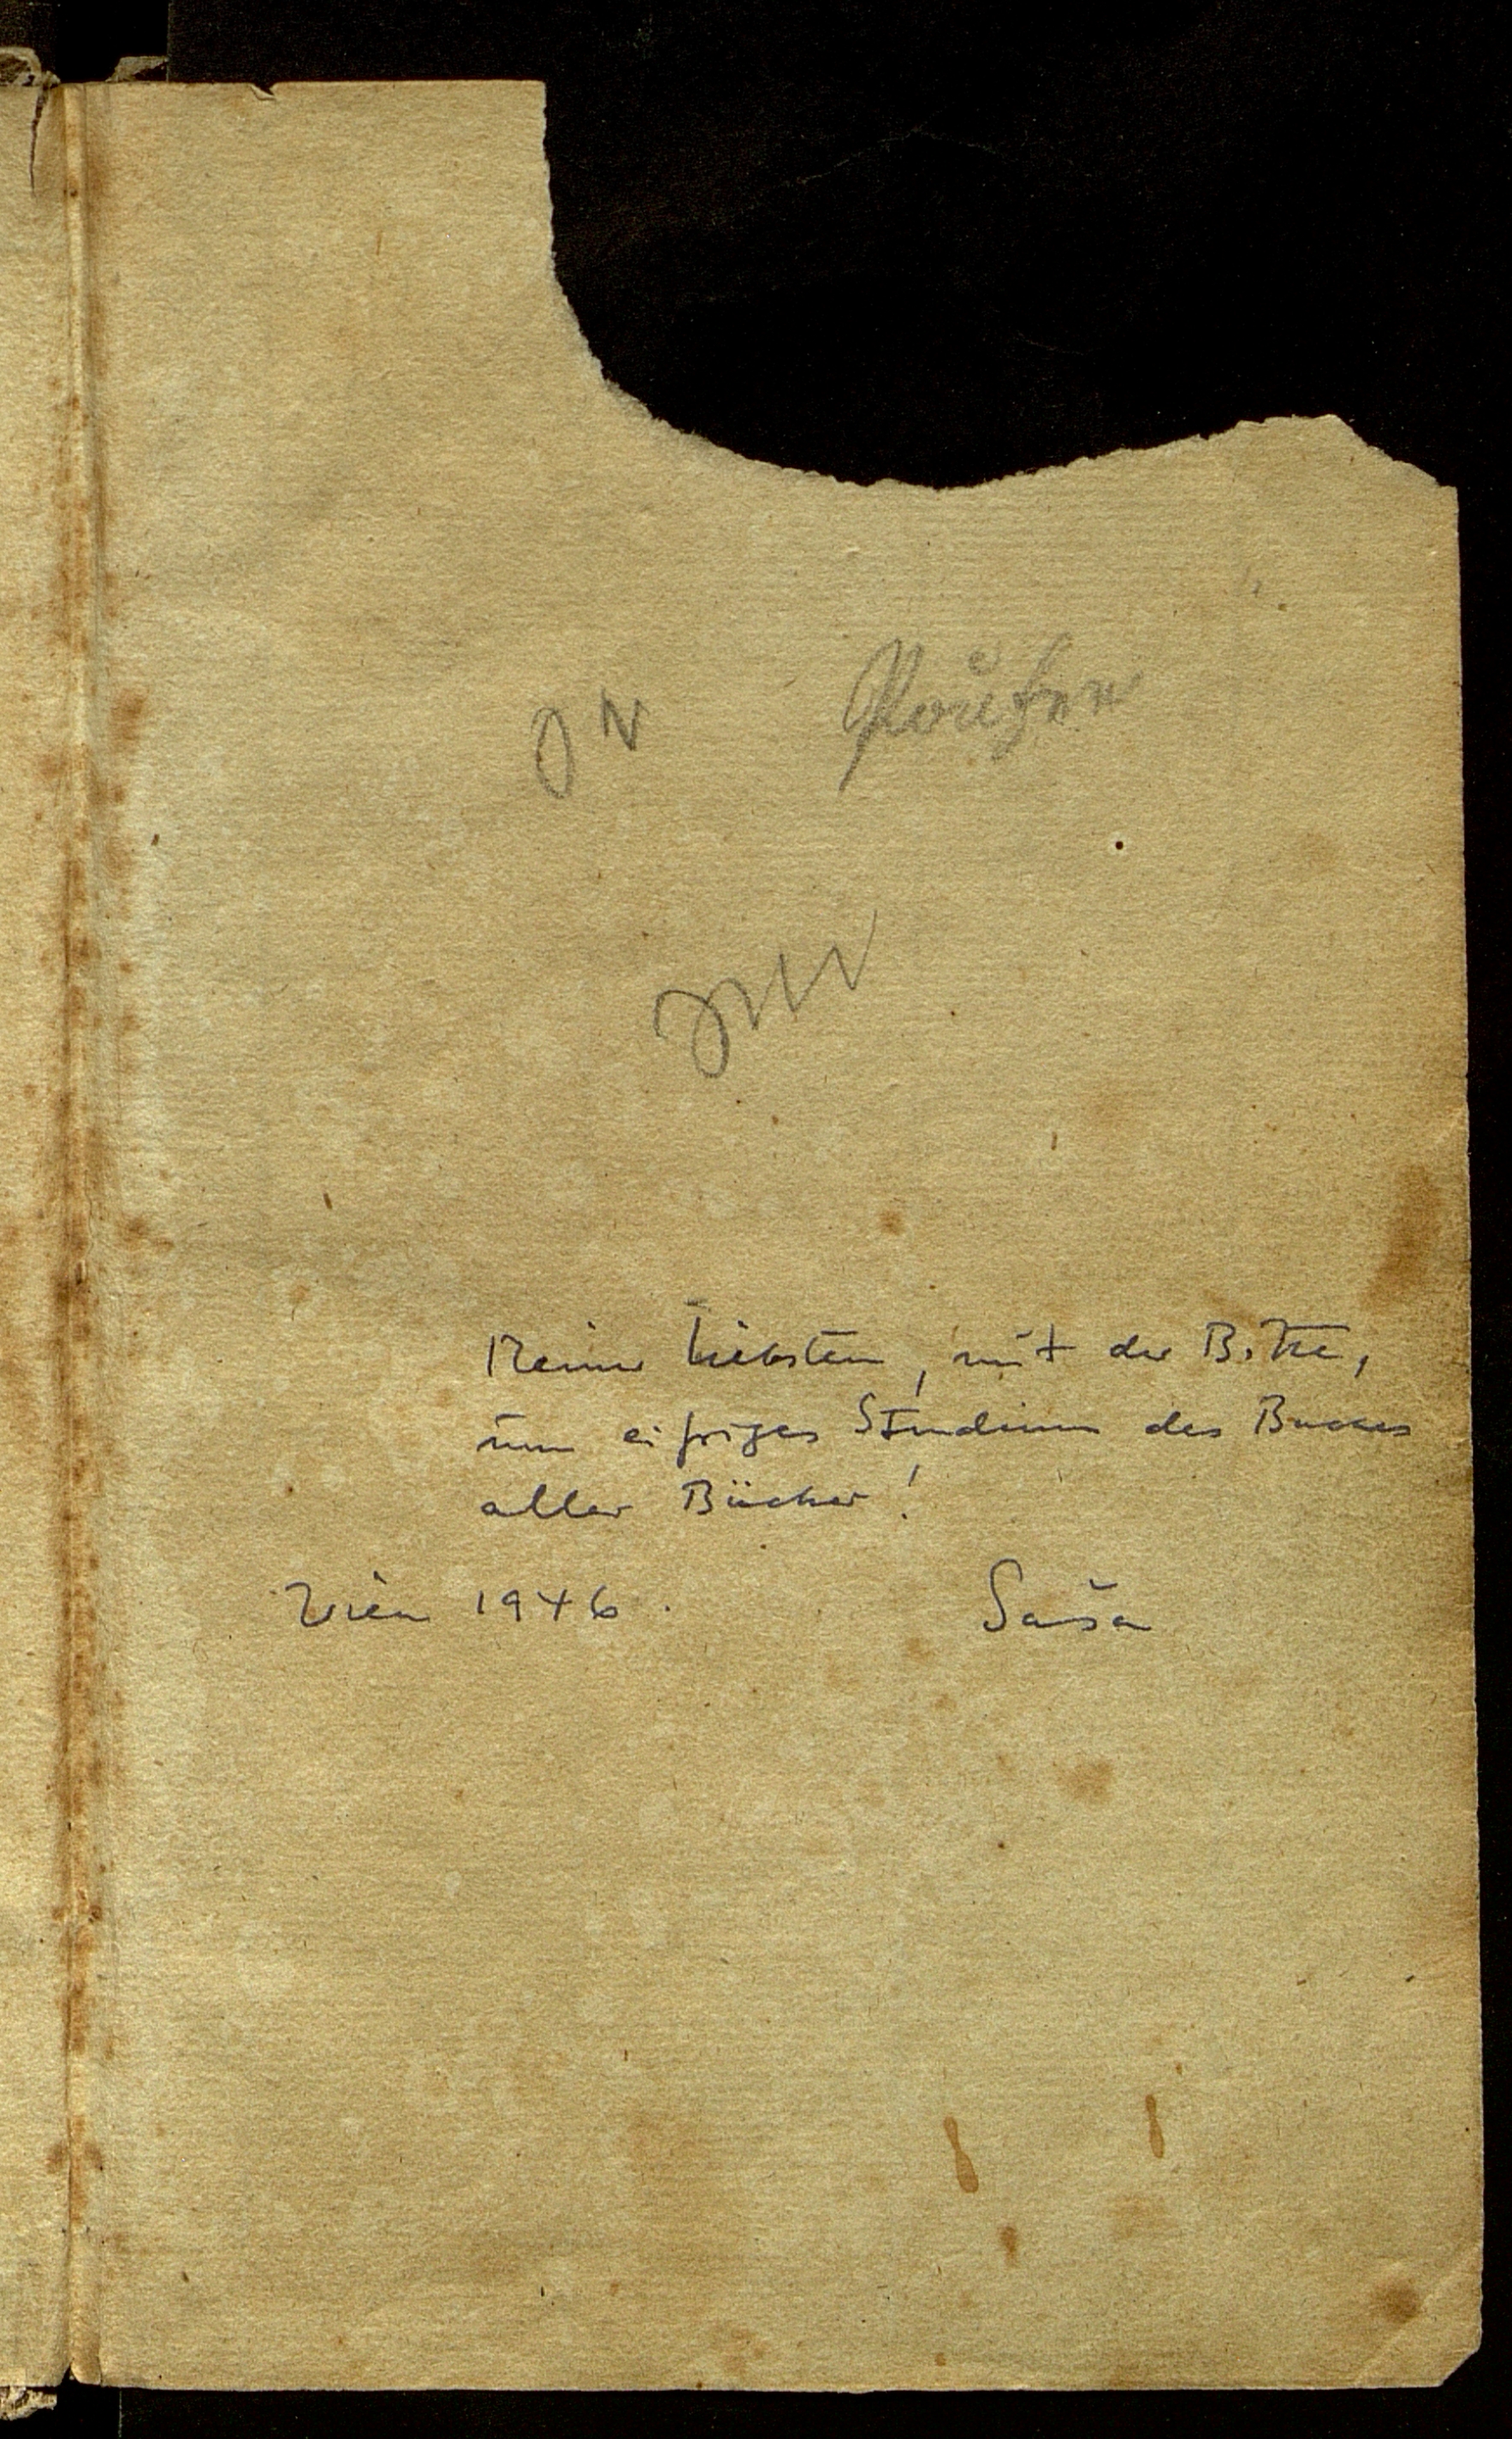 Meiner Liebsten, mit der Bitte,
um eifriges Studium des Buches
aller Bücher!
Wien 1946. Saša